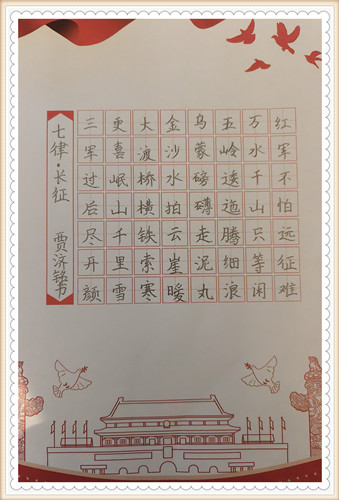 红军不怕远征难
万水千山只等闲
五岭逶迤腾细浪
乌蒙磅礴走泥丸
金沙水拍云崖暖
大渡桥横铁索寒
更喜岷山千里雪
三军过后尽开颜
七律·长征 贾济铭书